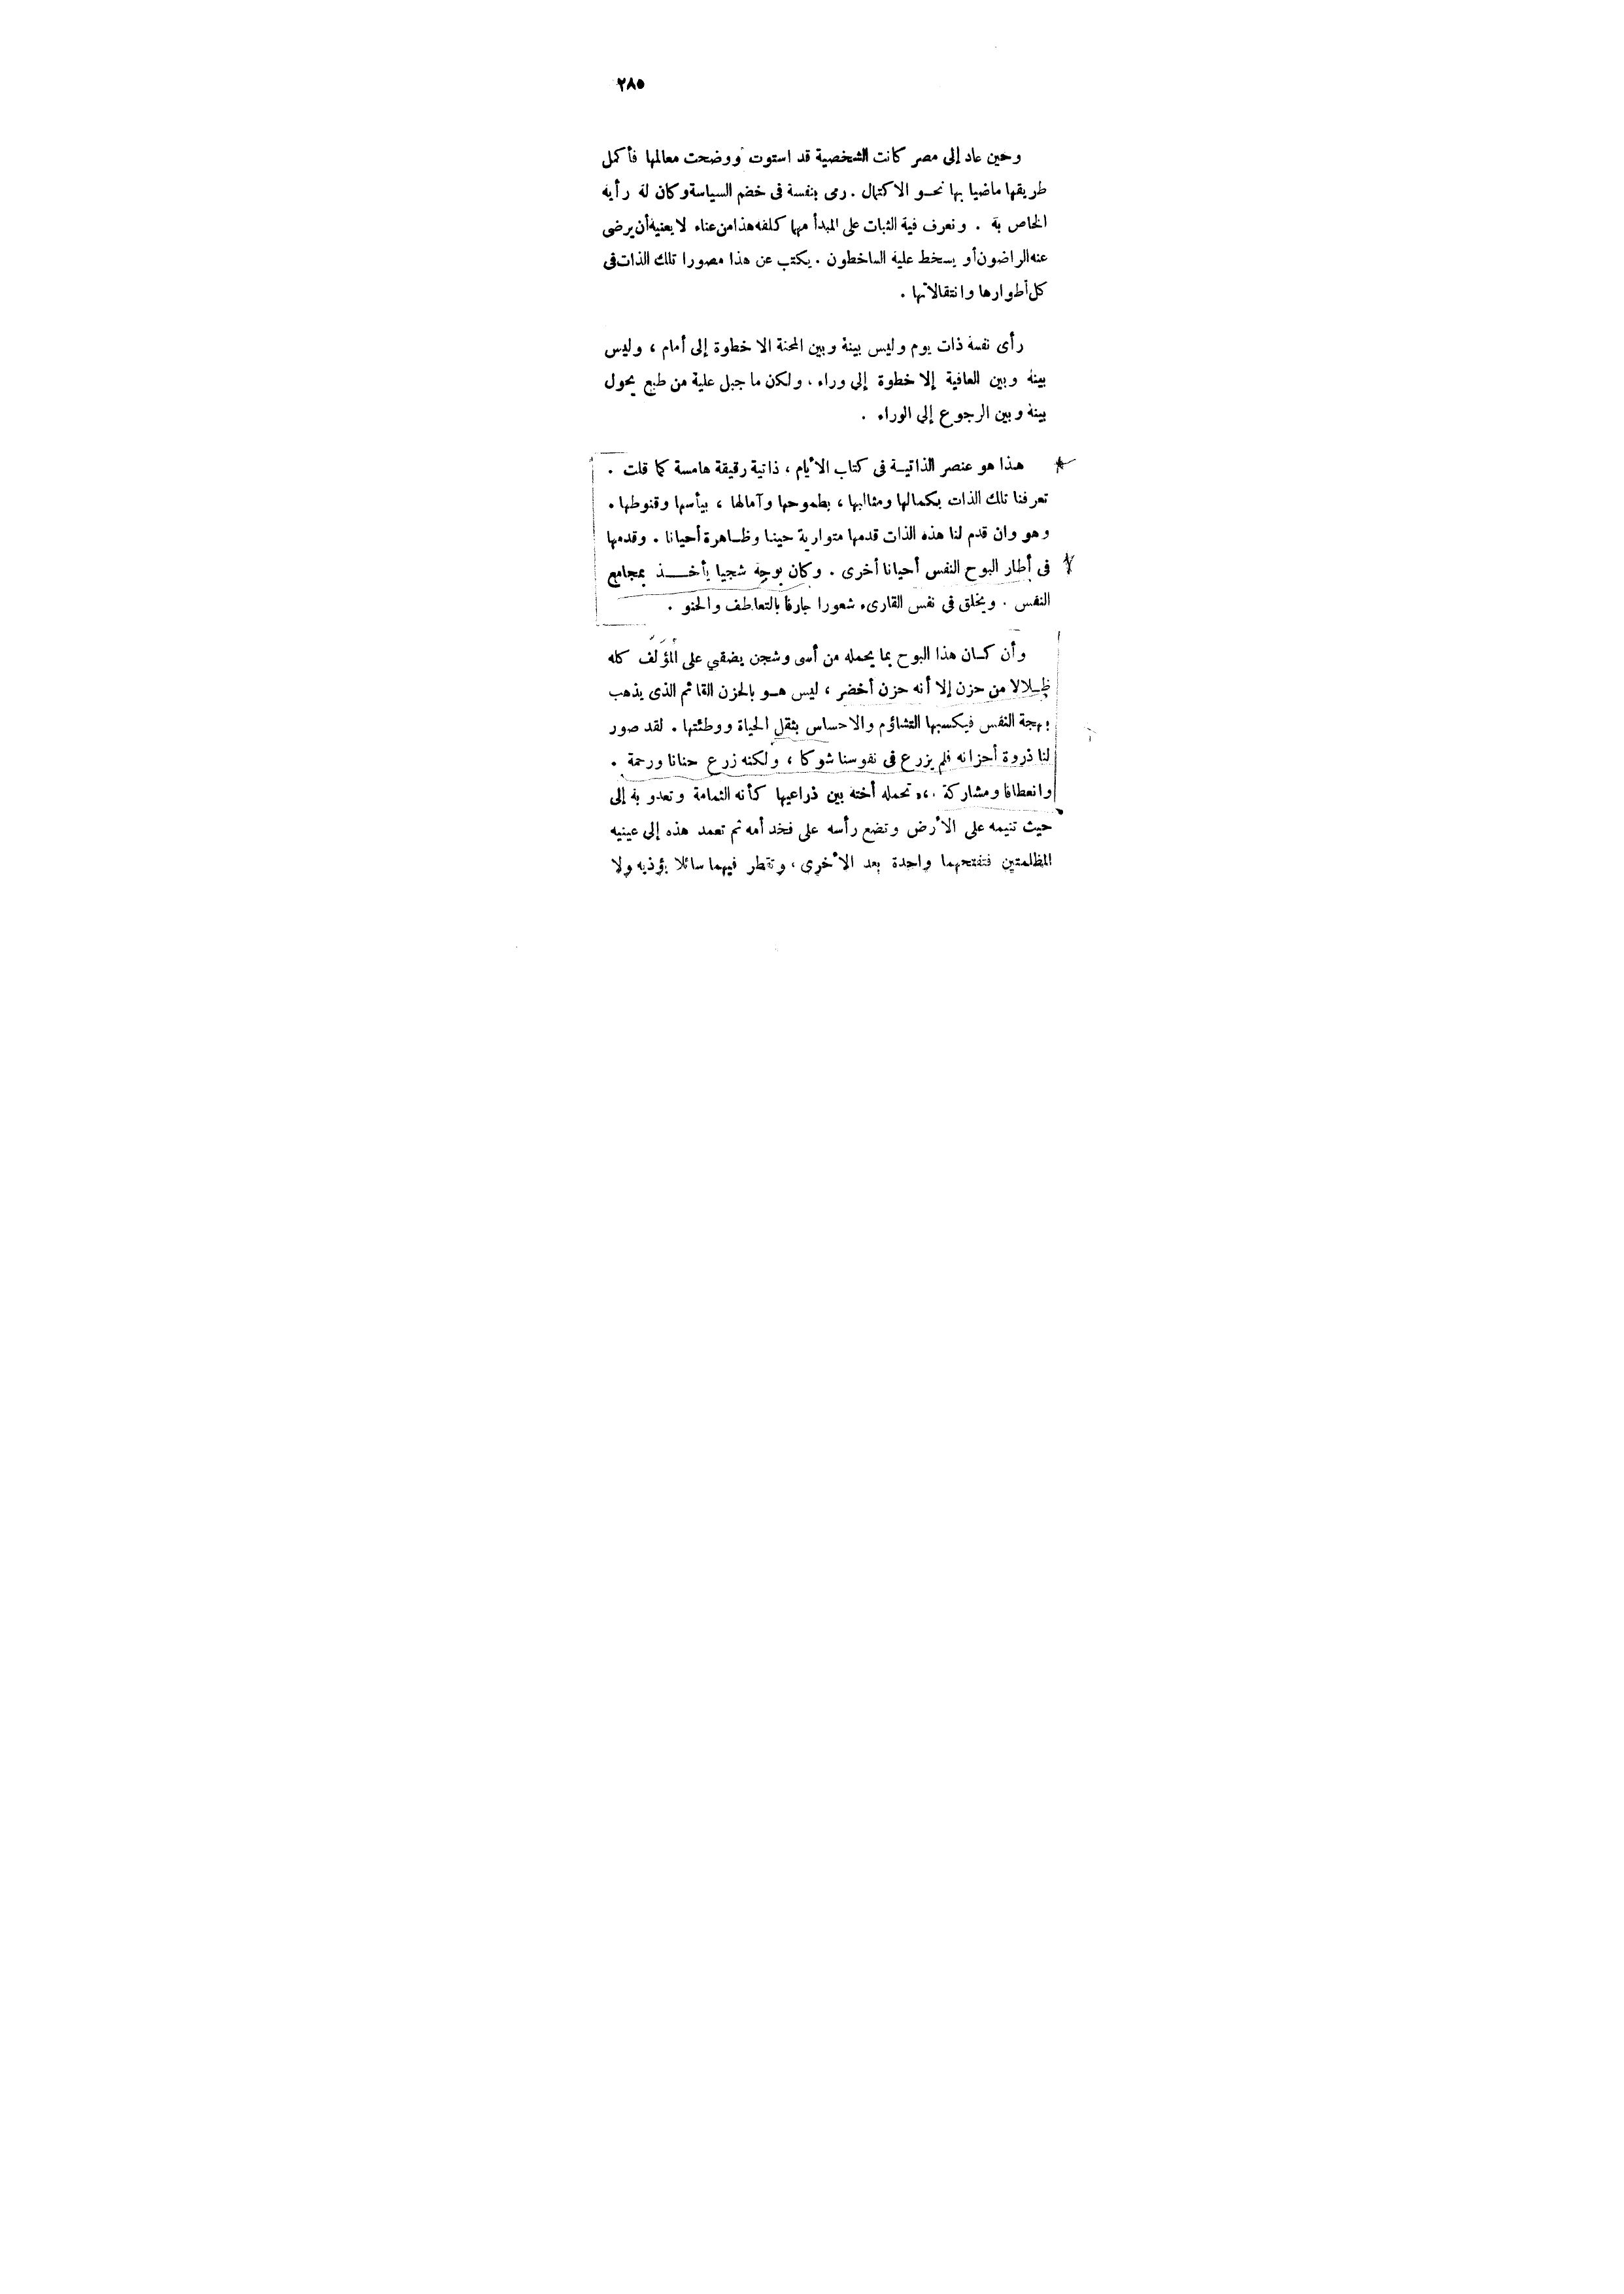 ٢٨٥
وحين عاد إلى مصر كانت الشخصية قد استوت ووضحت معالمها فأكمل
طريقها ماضيا بها نحو الاكتمال . رمى بنفسة فى خضم السياسة وكان لة رأية
الخاص بة . ونعرف فية الثبات على المبدأ مهما كلفه هذا من عناء لا يعنية أن يرضى
عنه الراضون أو يسخط علية الساخطون . يكتب عن هذا مصورا تلك الذات فى
كل أطوارها وانتقالاتها .
رأى نفسة ذات يوم وليس بينة وبين المحنة الا خطوة إلى أمام ، وليس
بينة وبين العافية إلا خطوة إلى وراء ، ولكن ما جبل علية من طبع يحول
بينة وبين الرجوع إلى الوراء .
هذا هو عنصر الذاتية فى كتاب الأيام ، ذاتية رقيقة هامسة كما قلت .
تعرفنا تلك الذات بكمالها ومثالبها ، بطموحها وآمالها ، بيأسها وقنوطها .
وهو وان قدم لنا هذه الذات قدمها متوارية حينا وظاهرة أحيانا . وقدمها
فى أطار البوح النفس أحيانا أخرى . وكان بوحه شجيا يأخذ بمجامع
النفس . ويخلق فى نفس القارىء شعورا جارفا بالتعاطف والحنو .
وأن كان هذا البوح بما يحمله من أسى وشجن يضقي على المؤلف كله
ظلالا من حزن إلا أنه حزن أخضر ، ليس هو بالحزن القاتم الذى يذهب
بهجة النفس فيكسبها التشاؤم والاحساس بثقل الحياة ووطئتها . لقد صور
لنا ذروة أحزانه فلم يزرع فى نفوسنا شوكا ، ولكنه زرع حنانا ورحمة .
وانعطافا ومشاركة . ،، تحمله أختة بين ذراعيها كأنه الثمامة وتعدو بة إلى
حيث تنيمه على الأرض وتضع رأسه على فخد أمه ثم تعمد هذه إلى عينيه
المظلمتين فتفتحهما واحدة بعد الأخرى ، وتقطر فيهما سائلا يؤذيه ولا